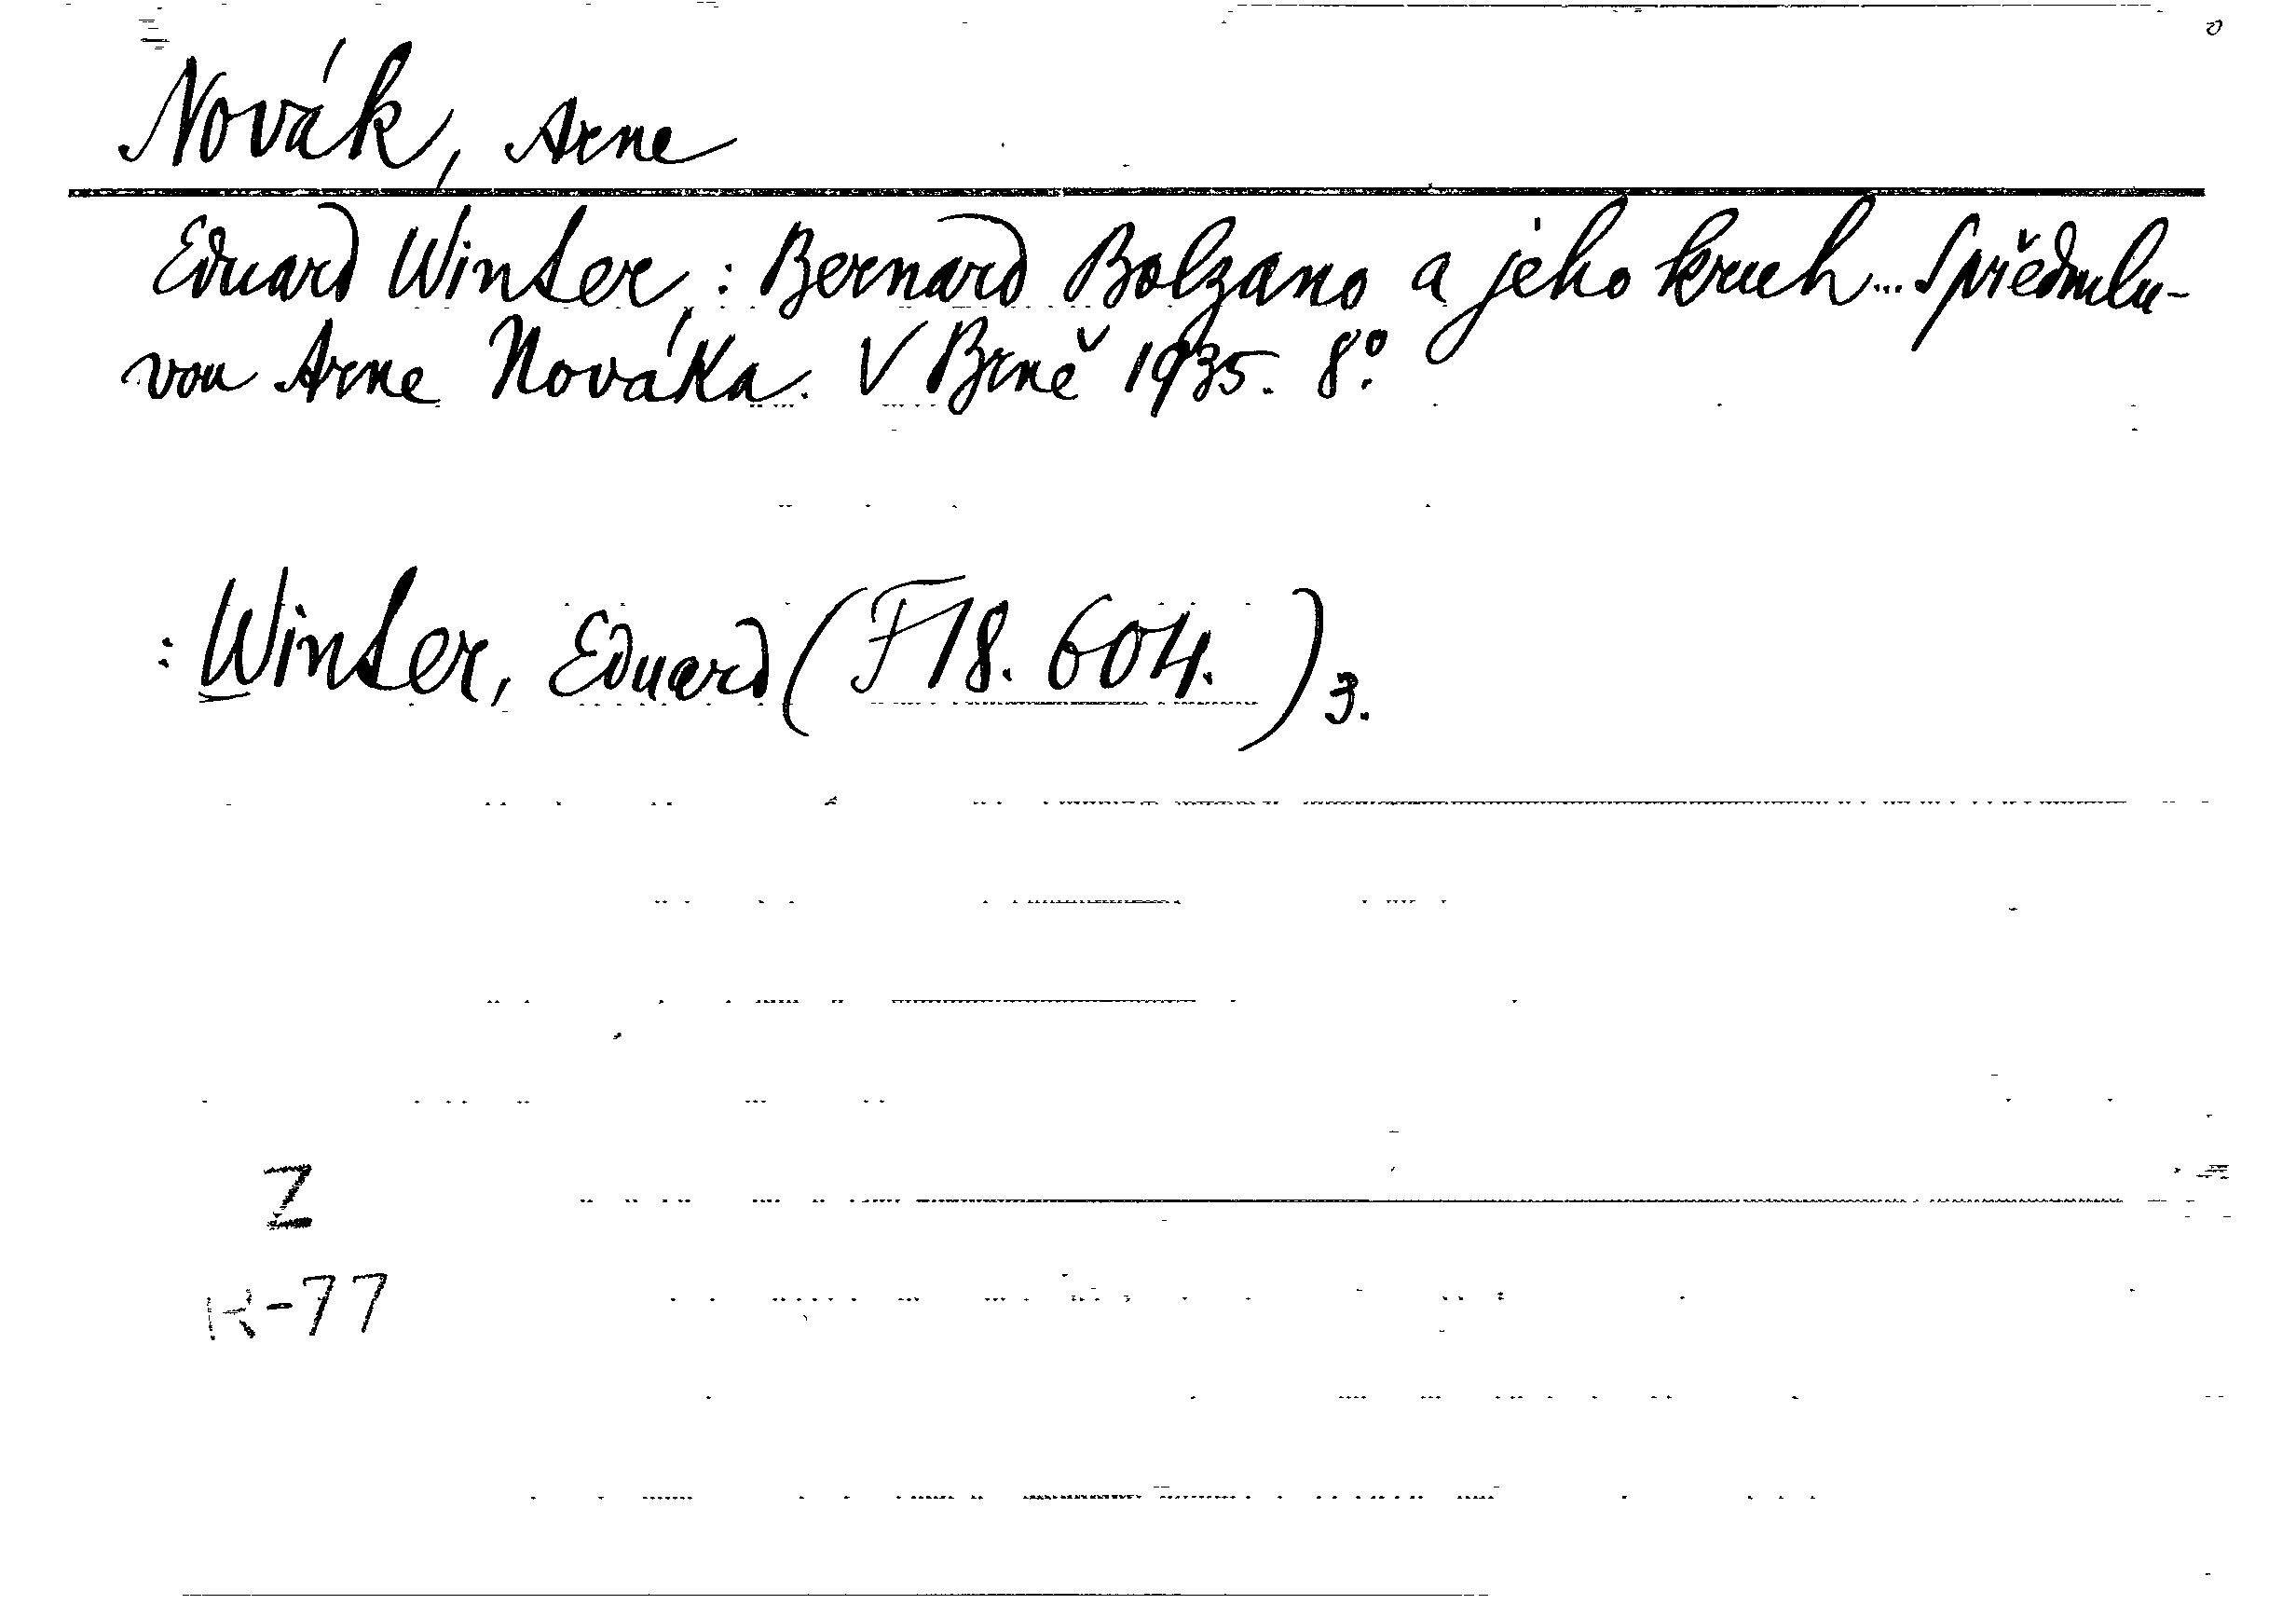 Novák, Arne
Eduard Winter : Bernard Bolzano a jeho kruh... S předmlu-
vou Arne Nováka. V Brně 1935. 8°.
: Winter, Eduard (F 18. 604. ) 3.
Z
K-77